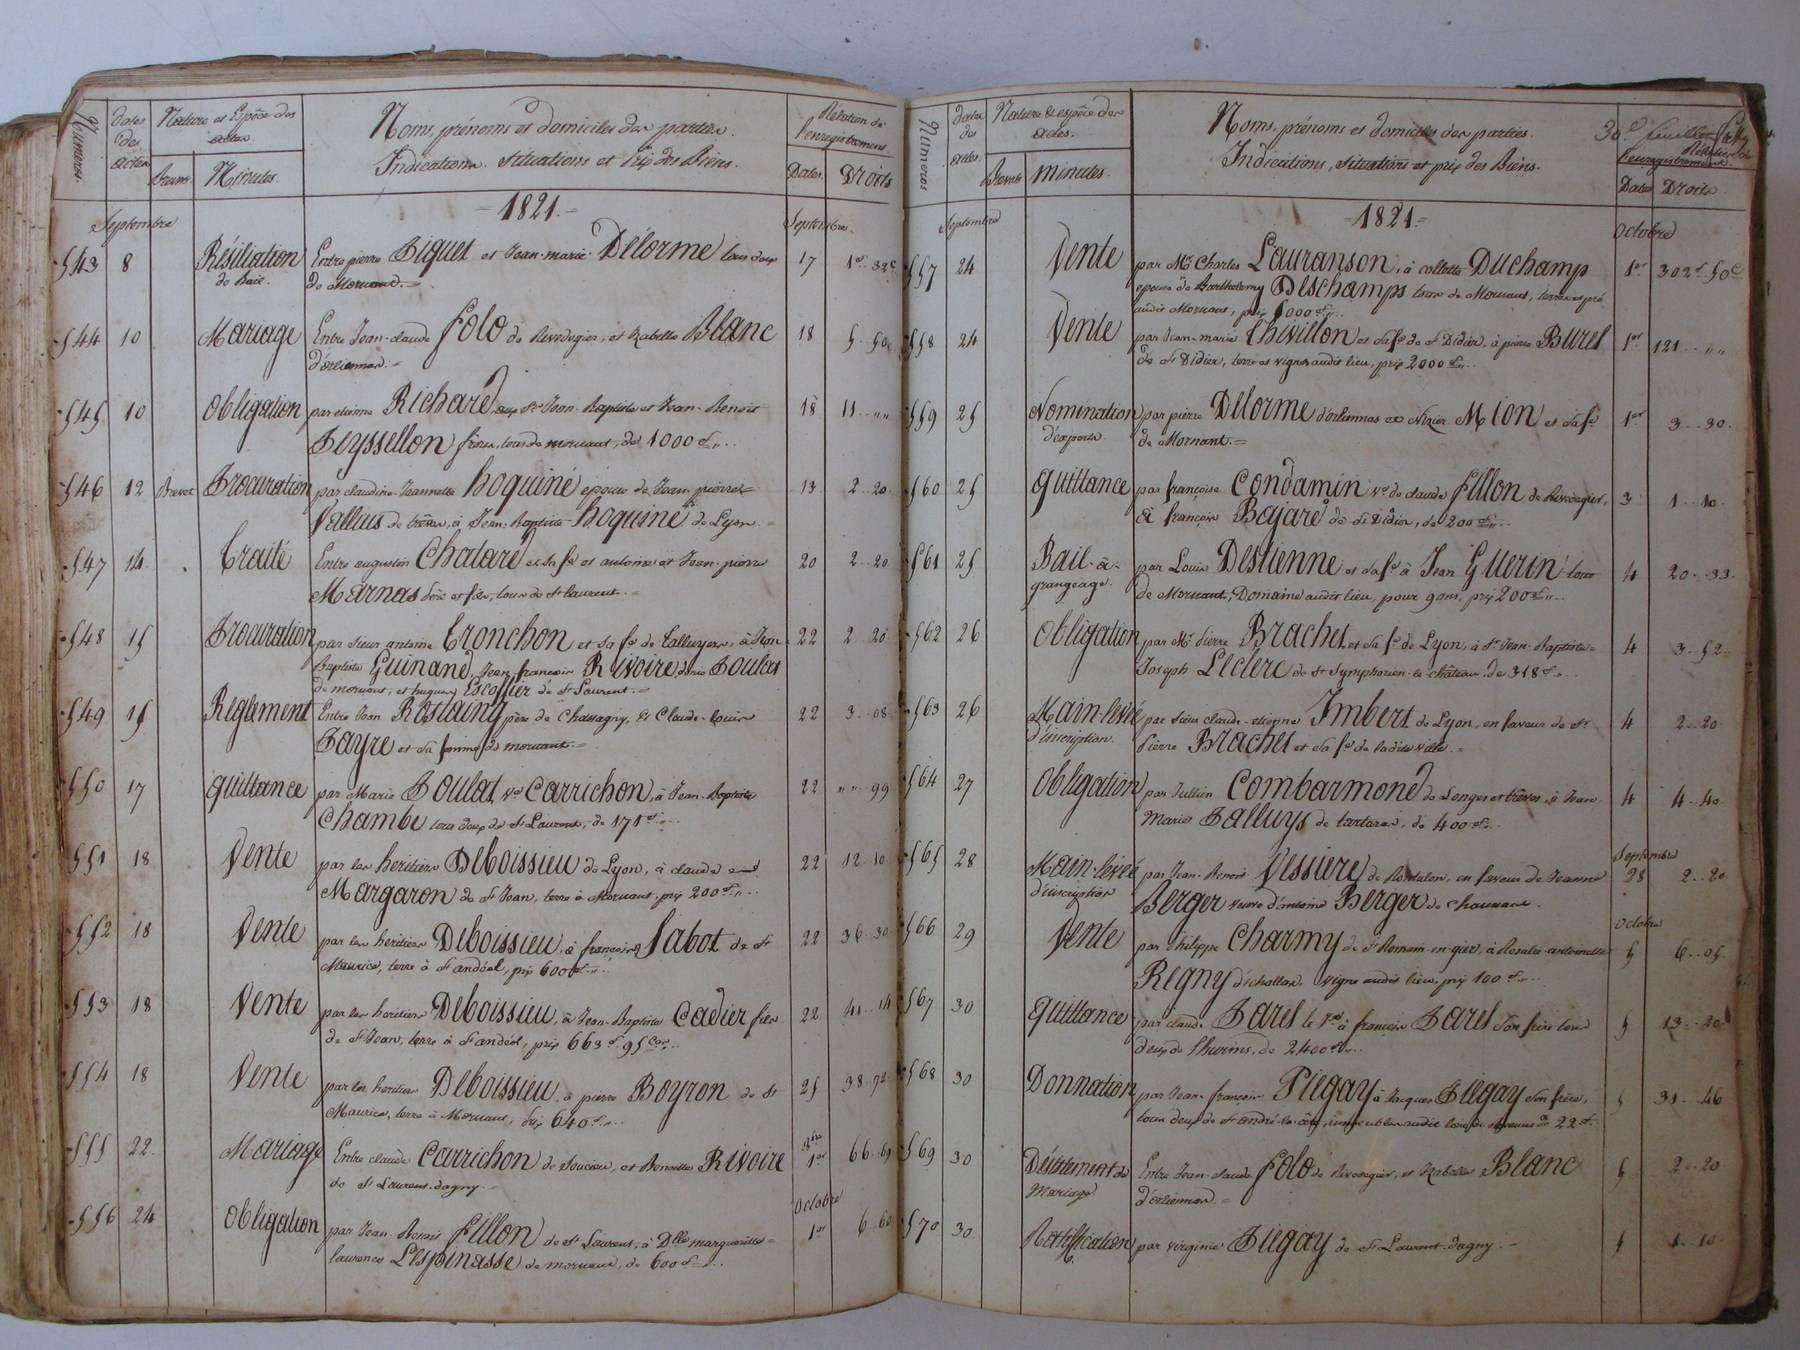 Numéros.
dates des actes
Nature et Espèce des actes
Brevets. Minutes.
Noms, prénoms et domiciles des parties.
Indications, Situations et Prix des Biens.
Rélation de l'enregistrement
Dates. Droits
1821.
Septembre Septembre
543 8 Résiliation Entre pierre Piquet et Jean-marie Delorme tous deux 17 1er 33c
de Bail. de Mornant.
544 10 Mariage Entre Jean-claude Folo de Rivedegier, et Izabelle Blanc 18 5 50
d'orliennas.
545 10 Obligation par etienne Richard, aux Srs Jean-Baptiste et Jean-Benoit 18 11 „„
Peyssellon frères, tous de mornant, de 1000 f
546 12 Brevet Procuration par claudine-Jeannette hoquiné épouse de Jean-pierre 13 2 20
Vallius de trêves, à Jean-Baptiste hoquiné de Lyon.
547 14 Traité Entre augustin Chatard et sa fe et antoine et Jean-pierre 20 2 20
Marnas père et fils, tous de St laurent.
548 15 Procuration par sieur antoine Tronchon et sa fe de Talluyers, à Jean 22 2 20
Baptiste Guinand, Jean françois Rivoire, denis Poulet
de mornant, et hugues Escoffier de St Laurent.
549 15 Règlement Entre Jean Rostaing père de Chassagny, et Claude-Louis 22 3 08
Fayre et sa femme de mornant.
550 17 quittance par Marie Poulat ve Carrichon, à Jean-Baptiste 22 „„ 99
Chambe tous deux de St Laurent, de 171 f
551 18 Vente par les heritiers Deboissieu de Lyon, à claude 22 12 10
Margaron de St Jean, terre à Mornant, prix 200 f
552 18 Vente par les heritiers Deboissieu, à françois Sabot de St 22 36 30
Maurice, terre à St andéol, prix 600 f
553 18 Vente par les heritiers Deboissieu, à Jean-Baptiste Cadier fils 22 41 14
de St Jean, terre à St andéol, prix 663 f 95 cmes
554 18 Vente par les heritiers Deboissieu, à pierre Boyron de St 25 38 72
Maurice, terre à Mornant, prix 640 f
555 22 Mariage Entre claude Carrichon de Soucieu, et Benoitte Rivoire 8bre 1er 66
de St Laurent-dagny.
Octobre
556 24 Obligation par Jean-Benoit Fillon de St Laurent, à Dlle marguerite 1er 6 60
laurence Lespinasse de mornant, de 600 f
Numeros
dates des actes.
Nature & espèce des actes.
Brevets minutes.
Noms, prénoms et domiciles des parties.
Indications, situations et prix des Biens.
30e feuillet
Rélation de l'enregistrement
Dates Droits
1821
Septembre Octobre
557 24 Vente par Mr Charles Lauranson, à collette Duchamp 1er 302 f 50 c
epouse de Barthelemy Deschamps tous de Mornant, terres et pré
audit Mornant, prix 5000 f
558 24 Vente par Jean-marie Chivillon et sa fe de St Didier, à pierre Burel 1er 121 „„
de St Didier, terre et vignes audit lieu, prix 2000 f
559 25 Nomination par pierre Delorme d'orliennas et Nizier Mion et sa fe 1er 3 30
d'experts. de Mornant.
560 25 quittance par françoise Condamin ve de claude Fillon de Rivedegier, 3 1 10
à françois Bajard de St Didier, de 200 f
561 25 Bail-à- par Louis Destienne et sa fe à Jean Guerin tous 4 20 33
grangeage. de Mornant, Domaine audit lieu, pour 9 ans, prix 200 f
562 26 Obligation par Mr Pierre Brachet et sa fe de Lyon, à Sr Jean-Baptiste- 4 3 52
Joseph Leclerc de St Symphorien-le-château, de 318 f
563 26 Main-levée par sieur claude-etienne Imbert de Lyon, en faveur de Sr 4 2 20
d'inscription. Pierre Brachet et sa fe de ladite ville.
564 27 Obligation par Jullien Combarmond de Longes et trêves, à Jean- 4 4 40
Marie Falluys de tartaras, de 400 f
Septembre
565 28 Main-levée par Jean-Benoit Vessiere de Rontalon, en faveur de Jeanne 28 2 20
d'inscription Berger veuve d'antoine Berger de Chaussan.
Octobre
566 29 Vente par Philippe Charmy de St Romain-en-gier, à Rosalie-antoinette 5 6 05
Regny d'échallas, vigne audit lieu, prix 100 f
567 30 quittance par claude Parel le Jne à françois Parel son frère tous 5 13 20
deux de Thurins, de 2400 f
568 30 Donnation par Jean-françois Piegay à Jacques Piegay son frère, 5 31 46
tous deux de St andré-la-côte, immeubles audit lieu de revenus de 22 f
569 30 Désistement de Entre Jean-claude Folo de Rivedegier, et Izabelle Blanc 5 2 20
Mariage d'orliennas.
570 30 Ratiffication par virginie Piegay de St Laurent-dagny. 5 1 10